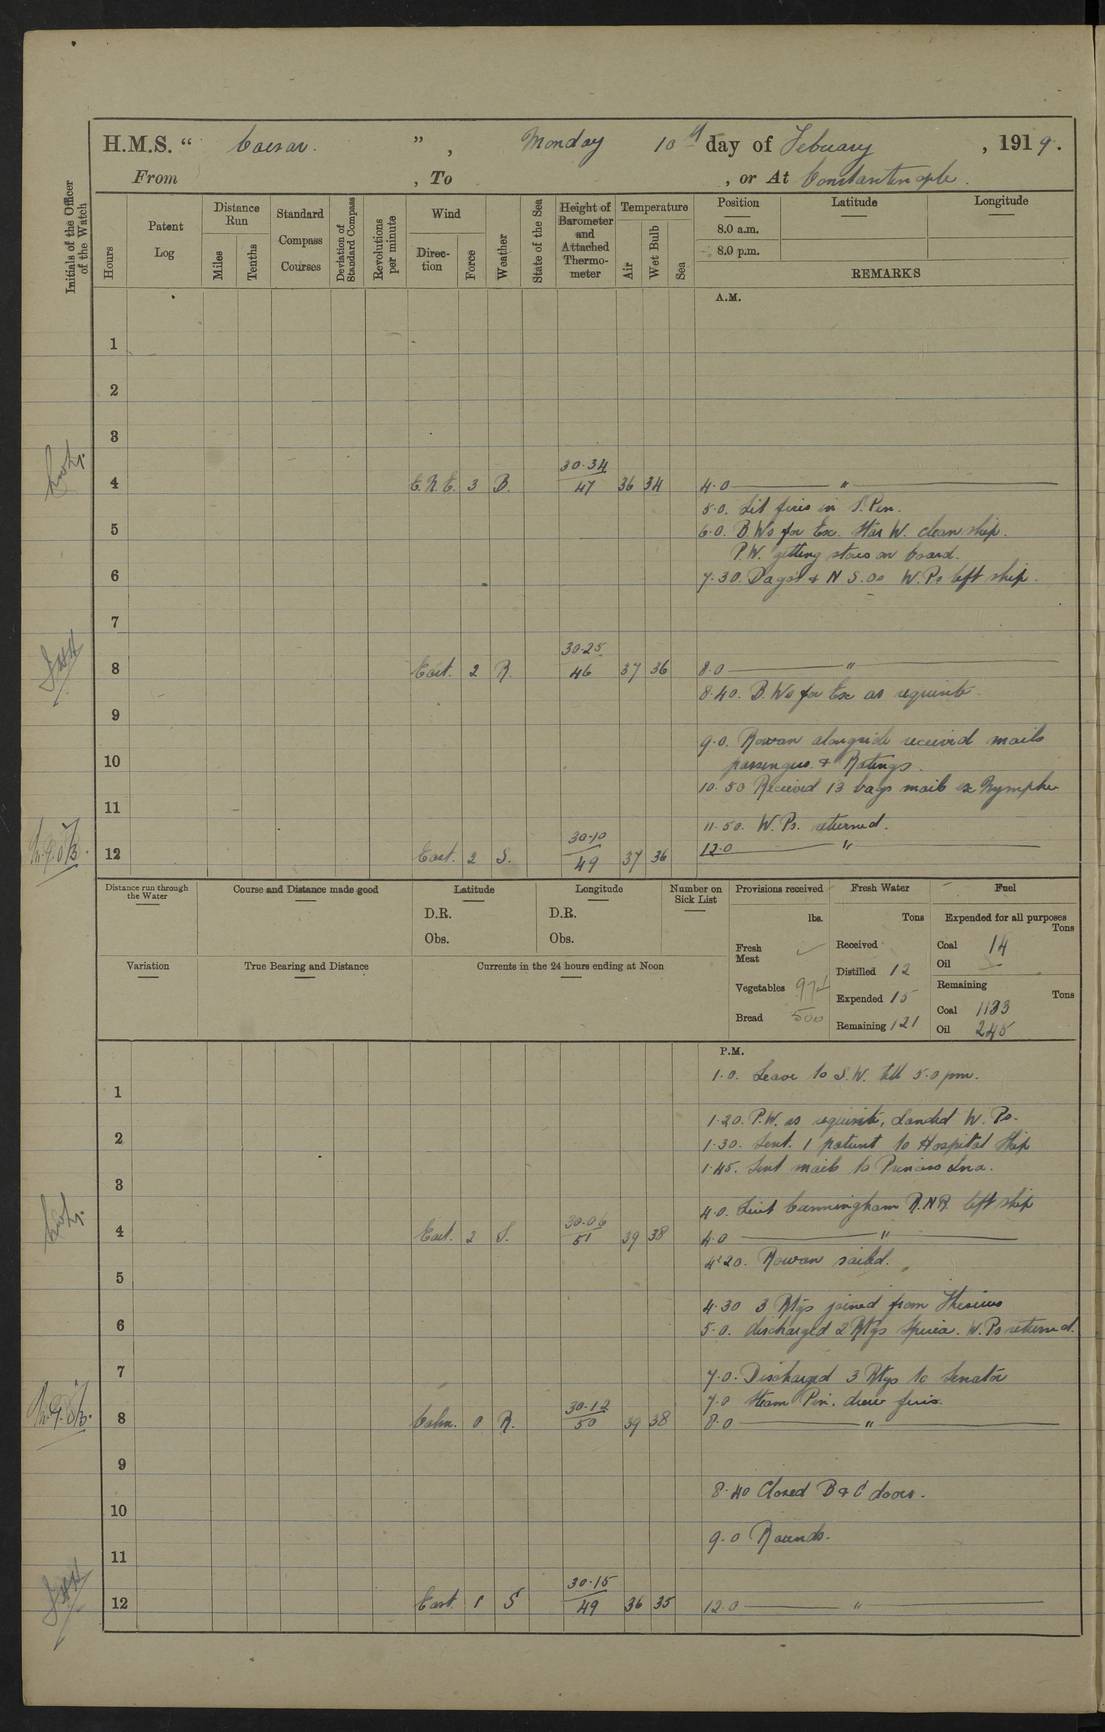 H.M.S. " Caesar. " , Monday 10th day of February , 1919.
From , To , or At Constantinople.
Initials of the Officer of the Watch
Hours
Patent Log
Distance Run
Miles
Tenths
Standard Compass Courses
Deviation of Standard Compass
Revolutions per minute
Wind
Direc-tion
Force
Weather
State of the Sea
Height of Barometer and Attached Thermo-meter
Temperature
Air
Wet Bulb
Sea
Position
Latitude
Longitude
8.0 a.m.
8.0 p.m.
REMARKS
A.M.
1
2
3
4 E.N.E. 3 B. 30·34 47 36 34 4·0 "
5·0. Lit fires in S. Pin.
5 6·0. B Ws for Ex. Star W. clean ship.
P.W. getting stores on board.
6 7·30. W. Ps left ship.
7
8 East. 2 R. 30·25 46 37 36 8·0 "
8·40. B. Ws for Ex as requisite.
9
9·0. Rowan alongside received mails
10 passengers. & Ratings.
10·50 Received 13 bags mails ex Nymphe
11
11·50. W. Ps. returned.
12 East. 2 S. 30·10 49 37 36 12·0 "
Distance run through the Water
Course and Distance made good
Latitude
D.R.
Obs.
Longitude
D.R.
Obs.
Number on Sick List
Provisions received
lbs.
Fresh Meat
Vegetables 974
Bread 500
Fresh Water
Tons
Received
Distilled 12
Expended 15
Remaining 121
Fuel
Expended for all purposes
Tons
Coal 14
Oil
Remaining
Tons
Coal 1133
Oil 245
Variation
True Bearing and Distance
Currents in the 24 hours ending at Noon
P.M.
1·0. Leave to S.W. till 5·0 pm.
1
1·20. P.W. as requisite, Landed W. Ps.
2 1·30. Sent. 1 patient to Hospital Ship
1·45. Sent mails to Princess Ena.
3
4·0. Lieut Cunningham R.N.R. left ship
4 East. 2 S. 30·06 51 39 38 4·0 "
4·20. Rowan sailed.
5
4·30 3 Rtgs joined from Theseus
6 5·0. discharged 2 Rtgs W. Ps returned.
7 7·0. Discharged 3 Rtgs to Senator
7·0 Steam Pin. drew fires.
8 Calm. 0 R. 30·12 50 39 38 8·0 "
9
8·40 Closed B & C doors.
10
9·0 Rounds.
11
12 East. 1 S 30·15 49 36 35 12·0 "